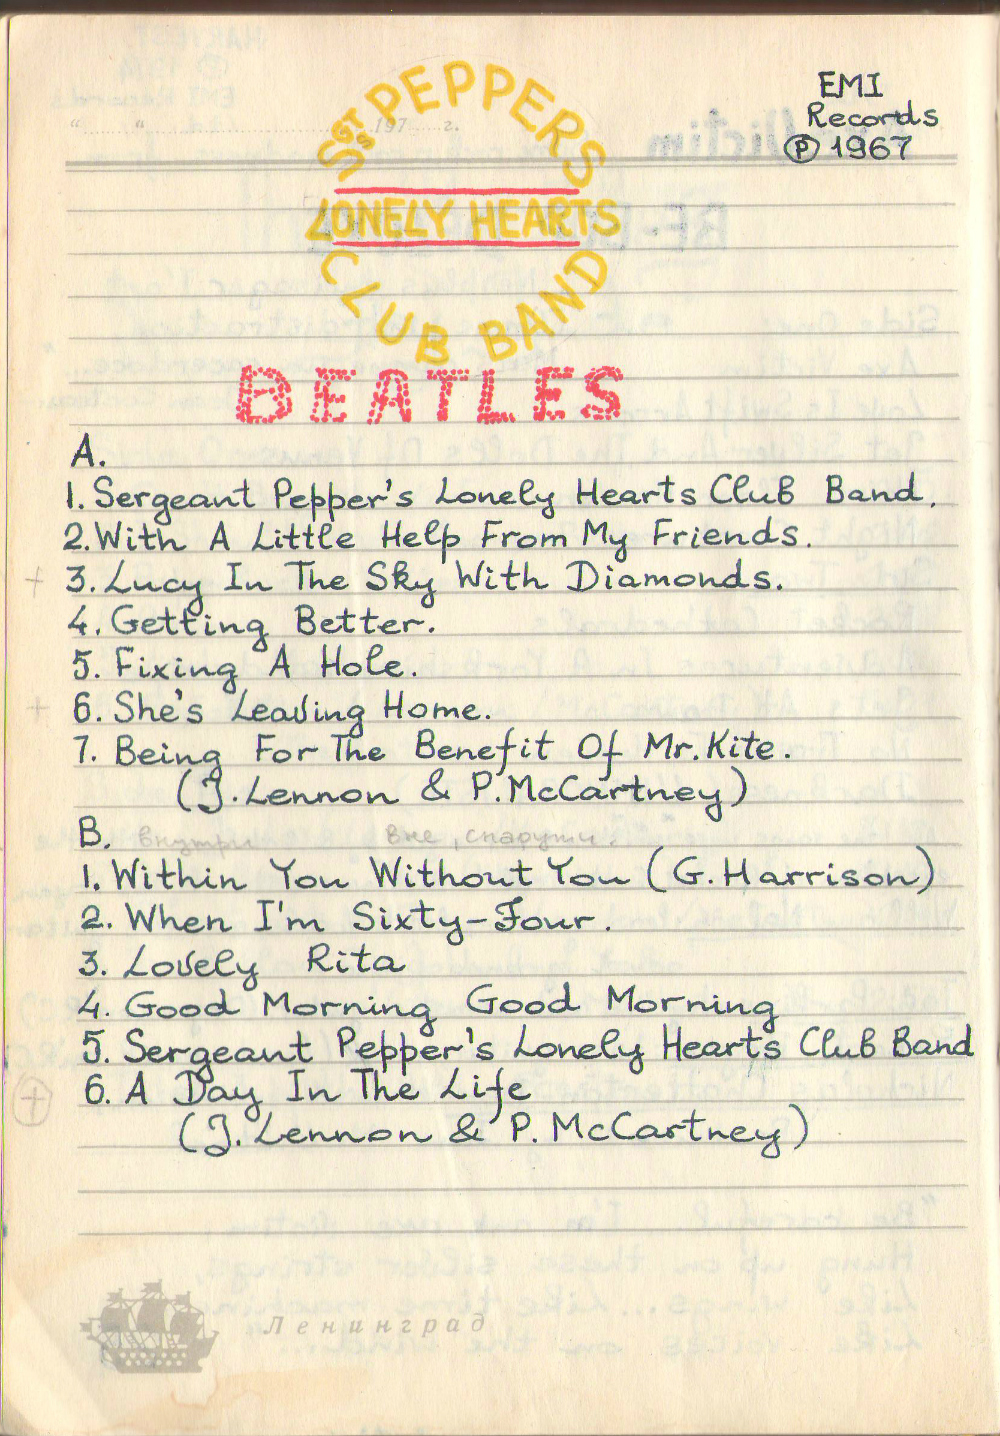 EMI
Records
Ⓟ 1967
"......" .................. 197..... г.
SGT PEPPERS
LONELY HEARTS
CLUB BAND
BEATLES
A.
1. Sergeant Pepper's Lonely Hearts Club Band.
2. With A Little Help From My Friends.
+ 3. Lucy In The Sky With Diamonds.
4. Getting Better.
5. Fixing A Hole.
+ 6. She's Leaving Home.
7. Being For The Benefit Of Mr. Kite.
(J. Lennon & P. McCartney)
B. внутри вне, снаружи.
1. Within You Without You (G. Harrison)
2. When I'm Sixty-Four.
3. Lovely Rita
4. Good Morning Good Morning
5. Sergeant Pepper's Lonely Hearts Club Band
+ 6. A Day In The Life
(J. Lennon & P. McCartney)
Ленинград